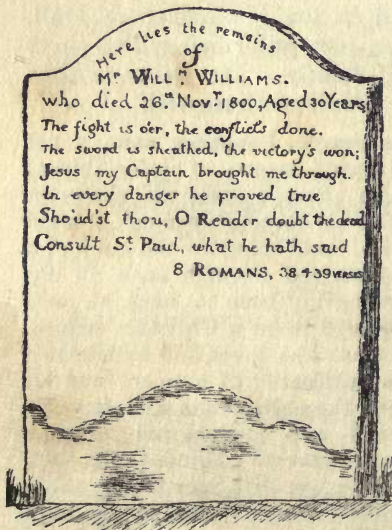 Here lies the remains
of
Mr Willm Williams.
who died 26th Novr 1800, Aged 30 Years
The fight is o'er, the conflict's done.
The sword is sheathed, the victory's won;
Jesus my Captain brought me through.
In every danger he proved true
Shou'd'st thou, O Reader doubt the dead
Consult St. Paul, what he hath said
8 Romans, 38 & 39 verses